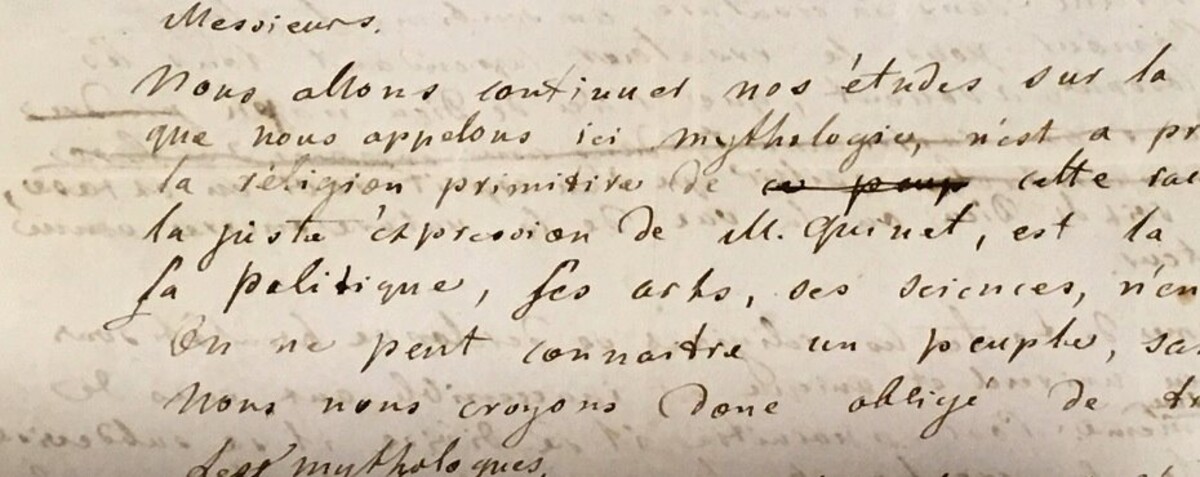 Messieurs.
Nous allons continuer nos études sur la
que nous appelons ici mythologie, n'est a pr
la réligion primitive de ce peup cette rac
la juste éxpression de M. Quinet, est la
sa politique, ses arts, ses sciences, n'en
On ne peut connaitre un peuple, sa
Nous nous croyons donc obligé de tr
mythologues,